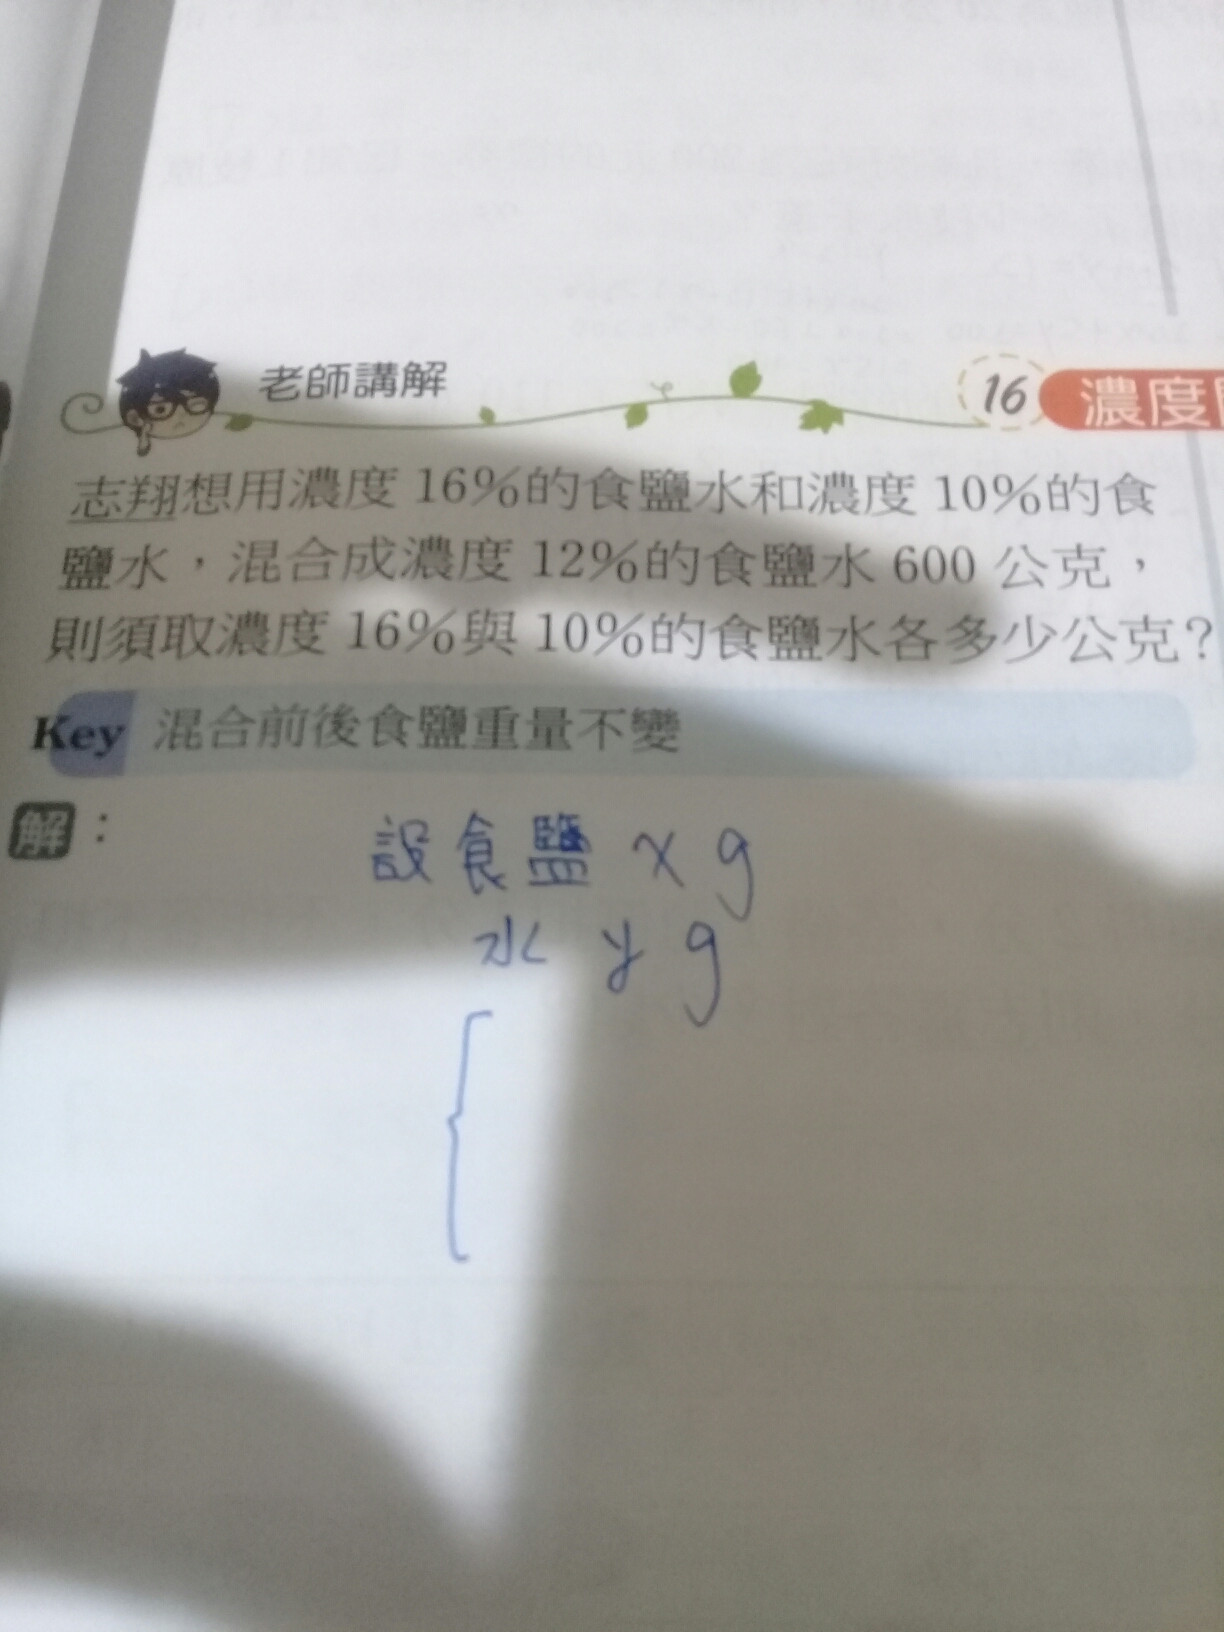 老師講解
16 濃度
志翔想用濃度 16%的食鹽水和濃度 10%的食
鹽水，混合成濃度 12%的食鹽水 600 公克，
則須取濃度 16%與 10%的食鹽水各多少公克？
Key 混合前後食鹽重量不變
解：
設食鹽 x g
水 y g